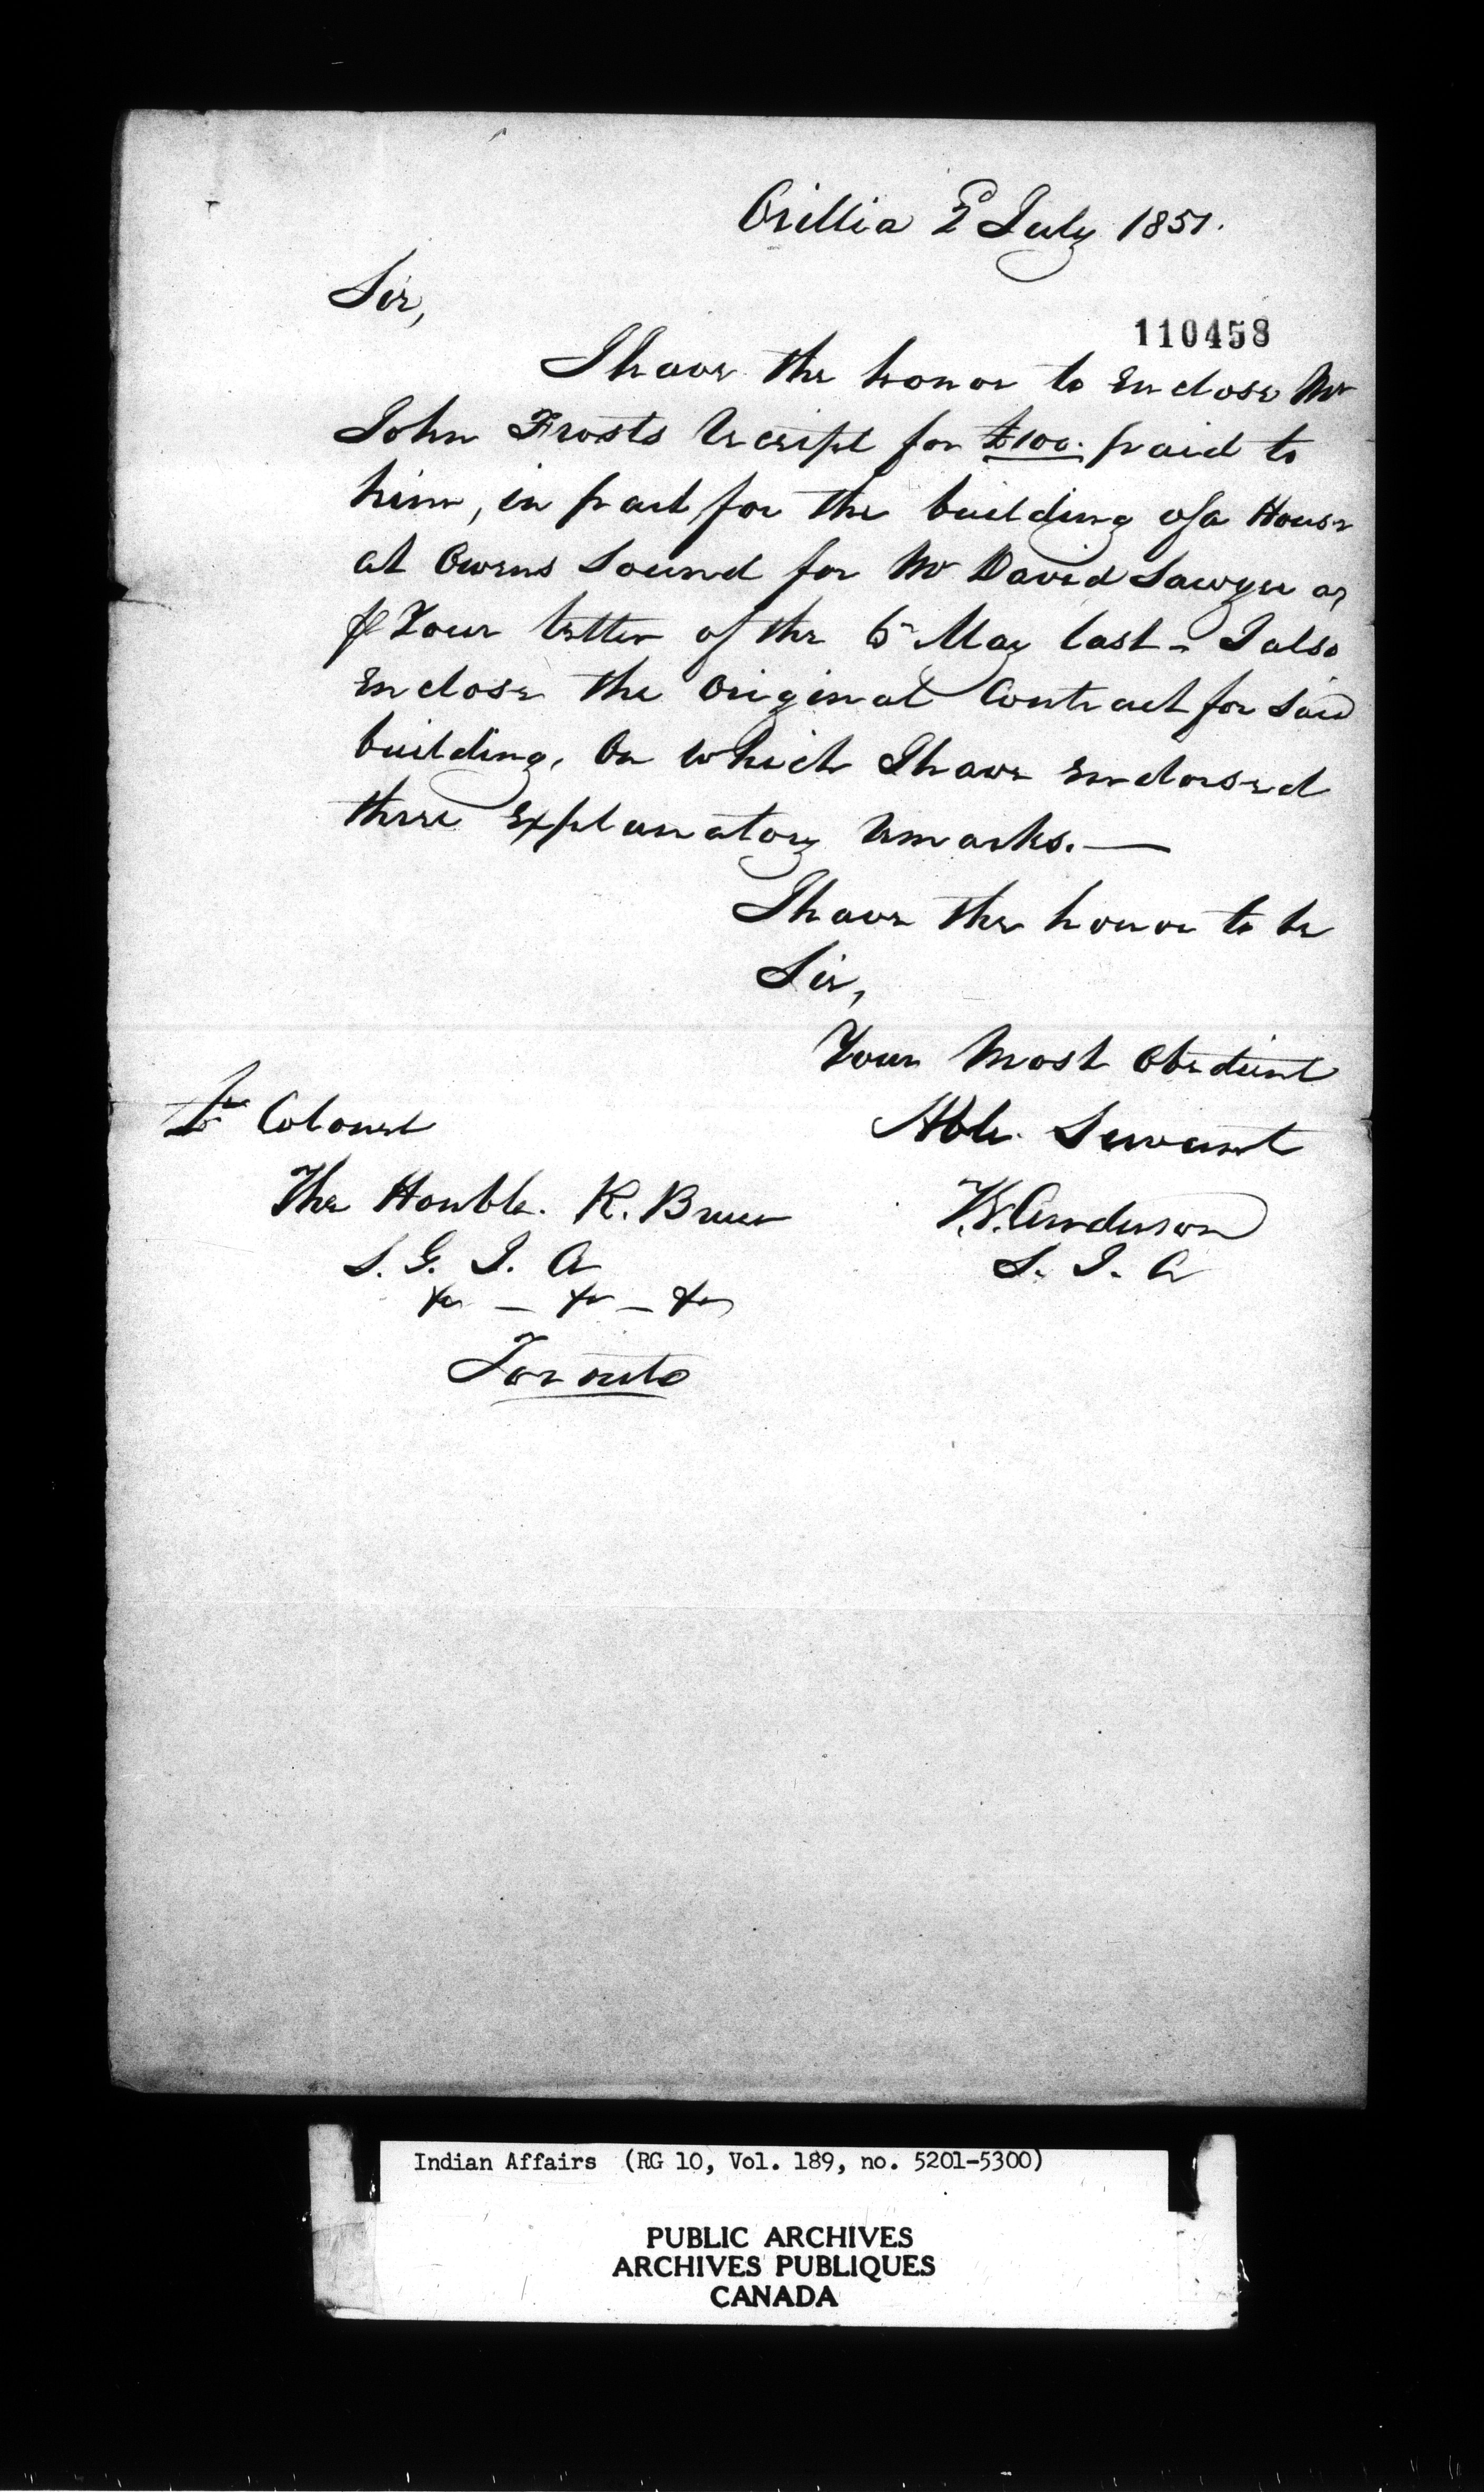 Orillia 2 July 1851.
Sir,
110458
I have the honor to Enclose Mr
John Frosts Receipt for £100. paid to
him, in part for the building of a House
at Owens Sound for Mr David Sawyer as
Your letter of the May last - I also
Enclose the Original Contract for Said
building, On which I have endorsed
three Explanatory Remarks. —
I have the honor to be
Sir,
Your Most Obedient
Hble. Servant
T.G. Anderson
S. I. A
Colonel
The Honble. R. Bruce
S. G. I. A
&c — &c — &c
Toronto
Indian Affairs (RG 10, Vol. 189, no. 5201-5300)
PUBLIC ARCHIVES
ARCHIVES PUBLIQUES
CANADA